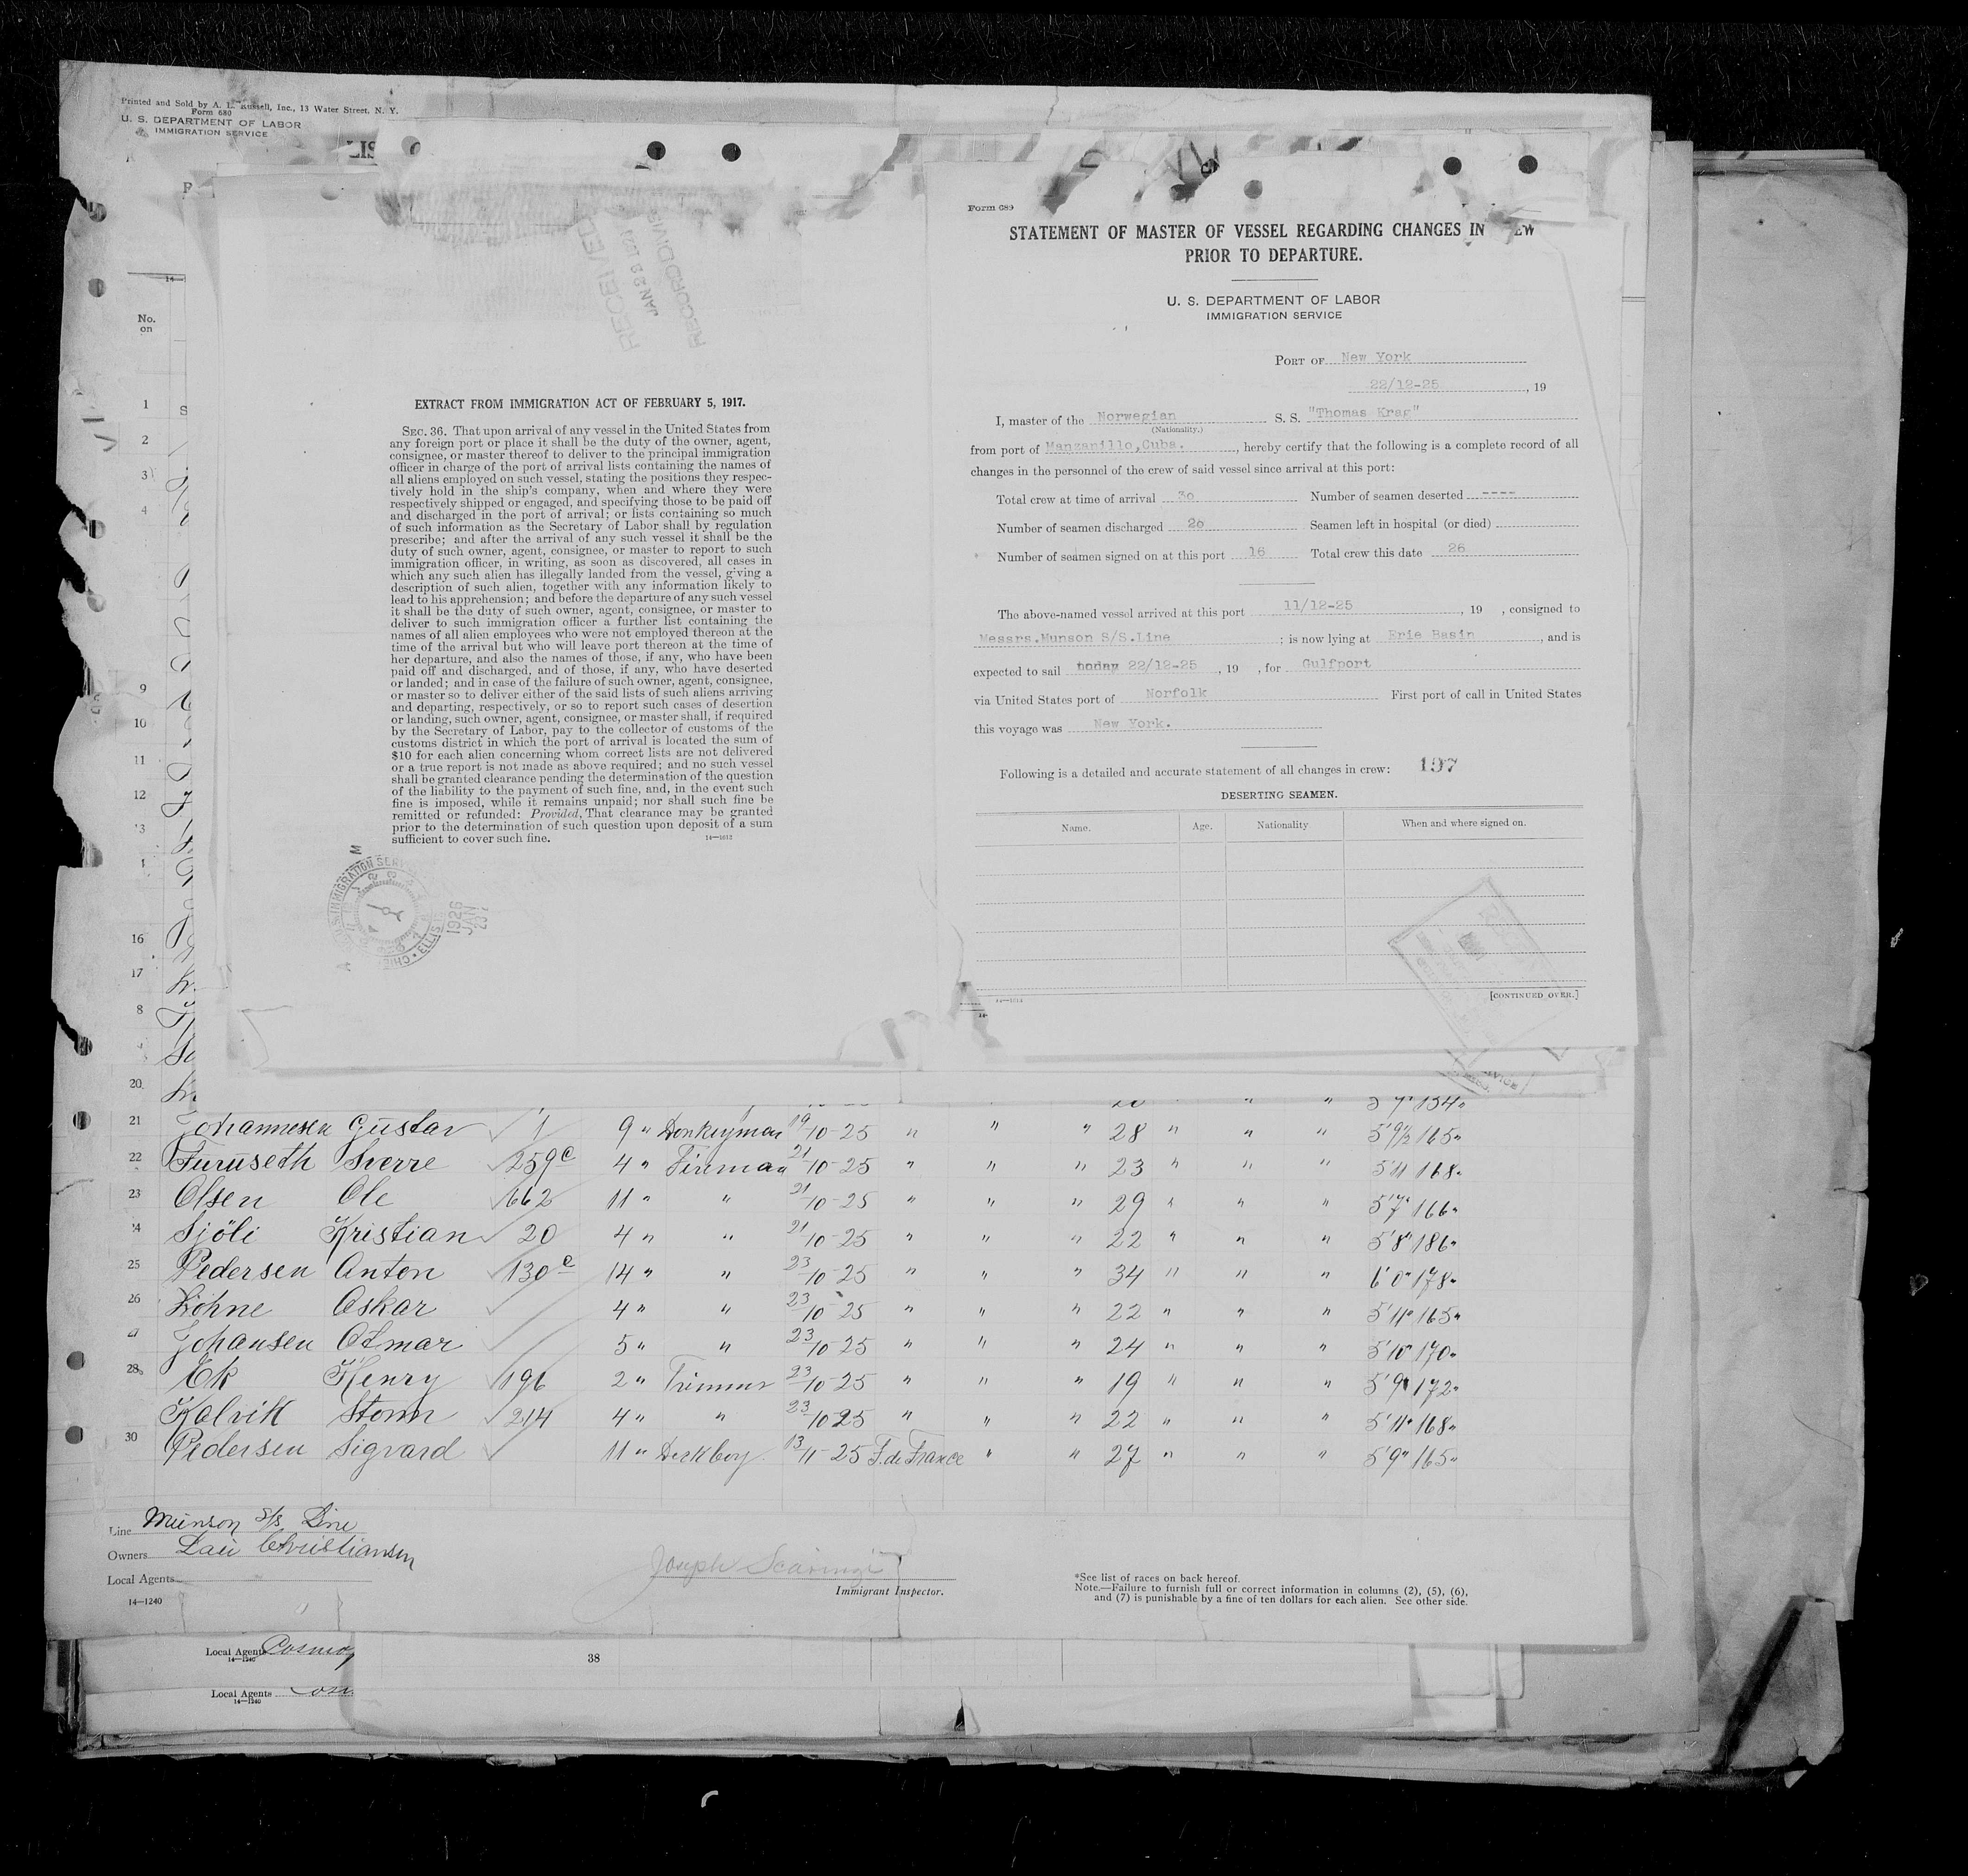 Printed and Sold by A. L. Russell, Inc., 13 Water Street, N. Y.
Form 680
U. S. DEPARTMENT OF LABOR
IMMIGRATION SERVICE
No.
on
RECEIVED
JAN 23 1926
RECORD DIVIS
EXTRACT FROM IMMIGRATION ACT OF FEBRUARY 5, 1917.
SEC. 36. That upon arrival of any vessel in the United States from
any foreign port or place it shall be the duty of the owner, agent,
consignee, or master thereof to deliver to the principal immigration
officer in charge of the port of arrival lists containing the names of
all aliens employed on such vessel, stating the positions they respec-
tively hold in the ship's company, when and where they were
respectively shipped or engaged, and specifying those to be paid off
and discharged in the port of arrival; or lists containing so much
of such information as the Secretary of Labor shall by regulation
prescribe; and after the arrival of any such vessel it shall be the
duty of such owner, agent, consignee, or master to report to such
immigration officer, in writing, as soon as discovered, all cases in
which any such alien has illegally landed from the vessel, giving a
description of such alien, together with any information likely to
lead to his apprehension; and before the departure of any such vessel
it shall be the duty of such owner, agent, consignee, or master to
deliver to such immigration officer a further list containing the
names of all alien employees who were not employed thereon at the
time of the arrival but who will leave port thereon at the time of
her departure, and also the names of those, if any, who have been
paid off and discharged, and of those, if any, who have deserted
or landed; and in case of the failure of such owner, agent, consignee,
or master so to deliver either of the said lists of such aliens arriving
and departing, respectively, or so to report such cases of desertion
or landing, such owner, agent, consignee, or master shall, if required
by the Secretary of Labor, pay to the collector of customs of the
customs district in which the port of arrival is located the sum of
$10 for each alien concerning whom correct lists are not delivered
or a true report is not made as above required; and no such vessel
shall be granted clearance pending the determination of the question
of the liability to the payment of such fine, and, in the event such
fine is imposed, while it remains unpaid; nor shall such fine be
remitted or refunded: Provided, That clearance may be granted
prior to the determination of such question upon deposit of a sum
sufficient to cover such fine.
14—1613
1926
JAN
23
Form 689
STATEMENT OF MASTER OF VESSEL REGARDING CHANGES IN EW
PRIOR TO DEPARTURE.
U. S. DEPARTMENT OF LABOR
IMMIGRATION SERVICE
PORT OF New York
22/12-25, 19
I, master of the Norwegian S. S. "Thomas Krag"
(Nationality.)
from port of Manzanillo,Cuba., hereby certify that the following is a complete record of all
changes in the personnel of the crew of said vessel since arrival at this port:
Total crew at time of arrival 30 Number of seamen deserted ----
Number of seamen discharged 20 Seamen left in hospital (or died)
Number of seamen signed on at this port 16 Total crew this date 26
The above-named vessel arrived at this port 11/12-25, 19 , consigned to
Messrs.Munson S/S.Line ; is now lying at Erie Basin, and is
expected to sail today 22/12-25, 19 , for Gulfport
via United States port of Norfolk First port of call in United States
this voyage was New York.
Following is a detailed and accurate statement of all changes in crew: 197
DESERTING SEAMEN.
Name. Age. Nationality When and where signed on.
14—1614
[CONTINUED OVER.]
1
2
3
4
9
10
11
12
16
17
8
20
21 Johannesen Gustav 1 9 " Donkeyman 19/10-25 " " " 28 " " " 5'9½ 165"
22 Furuseth Sverre 259c 4 " Fireman 21/10-25 " " " 23 " " " 5'11 168"
23 Olsen Ole 662 11 " " 21/10-25 " " " 29 " " " 5'7" 166"
24 Sjöli Kristian 20 4 " " 21/10-25 " " " 22 " " " 5'8" 186"
25 Pedersen Anton 130c 14 " " 23/10-25 " " " 34 " " " 6'0" 178"
26 Löhne Oskar 4 " " 23/10-25 " " " 22 " " " 5'11" 165"
27 Johansen Otmar 5 " " 23/10-25 " " " 24 " " " 5'10" 170"
28 Ek Henry 196 2 " Trimmer 23/10-25 " " " 19 " " " 5'9" 172"
Kalvik Storm 214 4 " " 23/10 25 " " " 22 " " " 5'11" 168"
30 Pedersen Sigvard 11 " Deckboy 13/11-25 F.de France " " 27 " " " 5'9" 165"
Line Munson S/S Line
Owners Lau Christiansen
Local Agents
14—1240
Joseph Scaringi
Immigrant Inspector.
*See list of races on back hereof.
Note.—Failure to furnish full or correct information in columns (2), (5), (6),
and (7) is punishable by a fine of ten dollars for each alien. See other side.
Local Agents
14—1240
38
Local Agents
14—1240